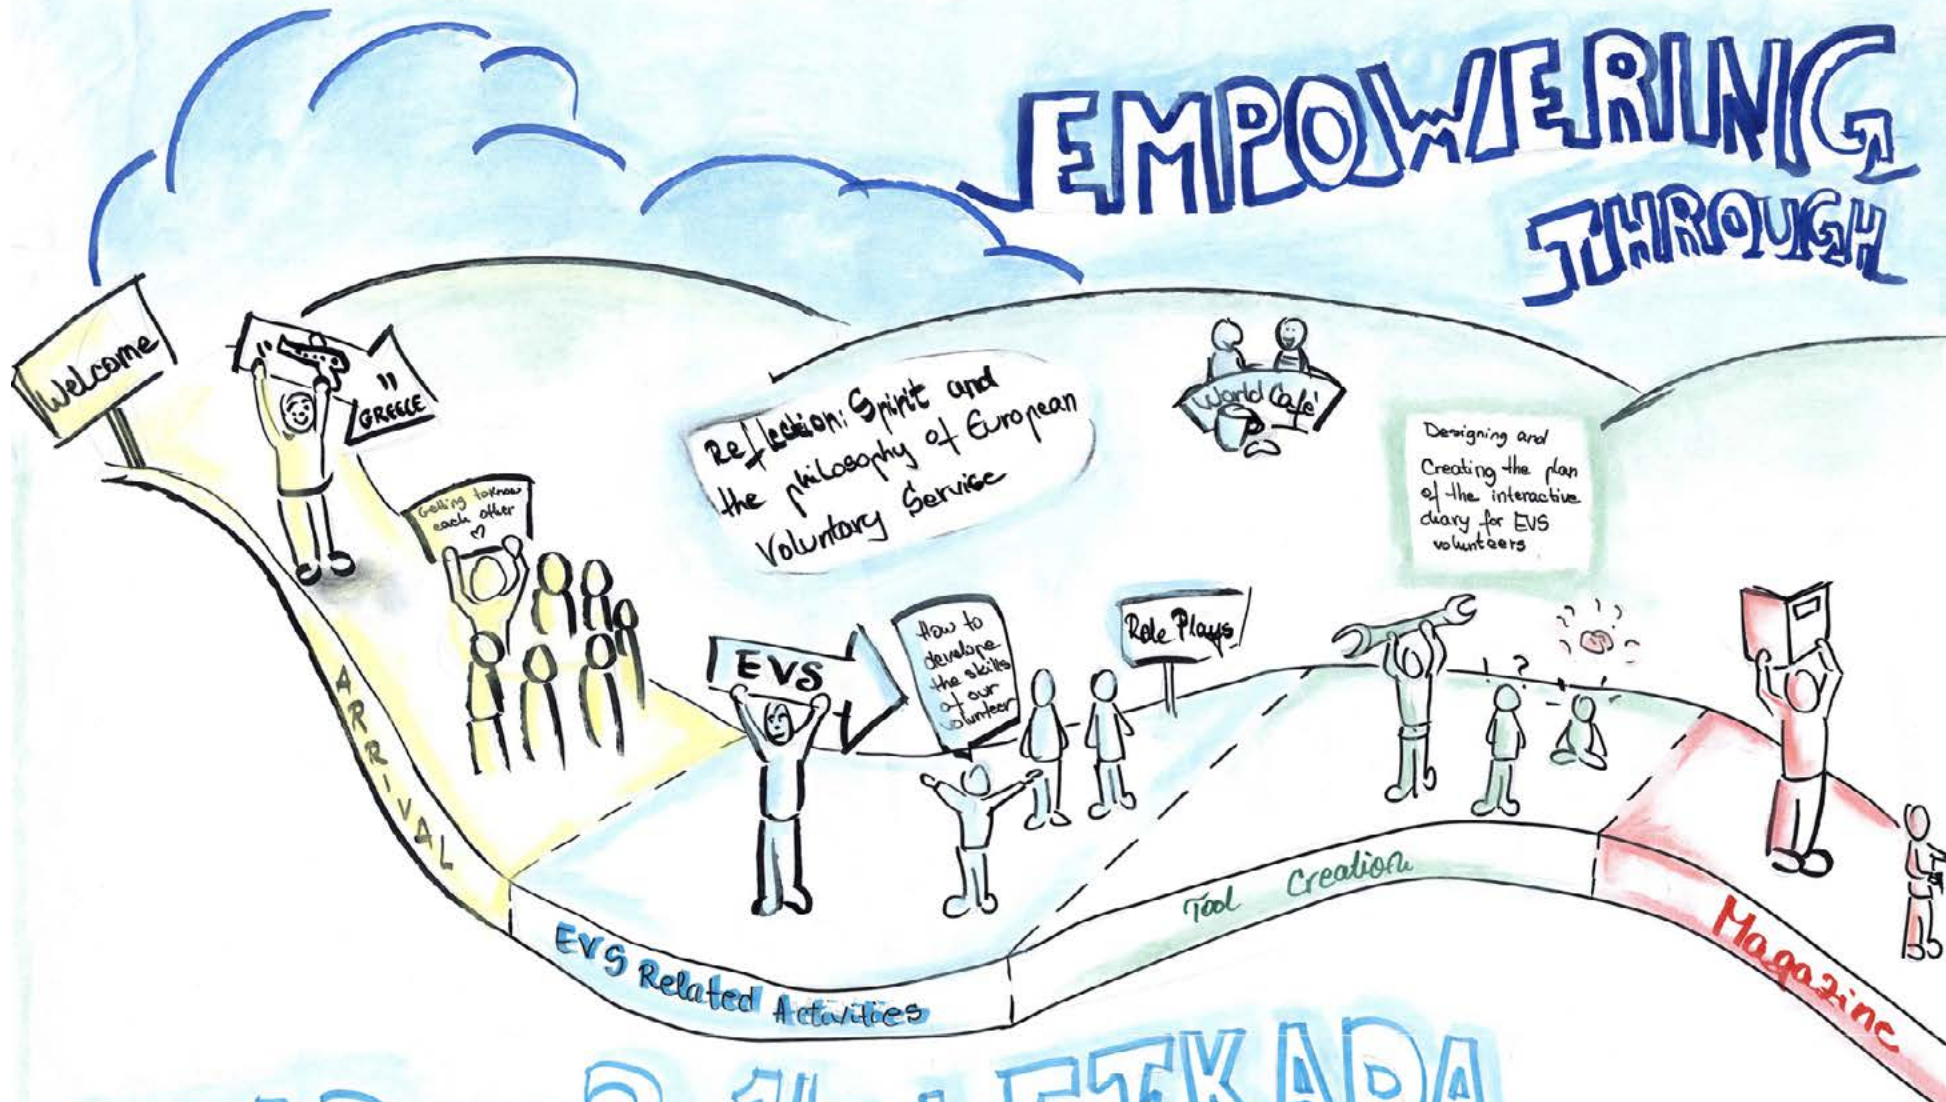 EMPOWERING
THROUGH
Welcome
" "
GREECE
Getting to know
each other
Reflection: Spirit and
the philosophy of European
Voluntary Servise
World Café
Designing and
Creating the plan
of the interactive
diary for EVS
volunteers
EVS
How to
develope
the skills
of our
volunteer
Role Plays
! ?
ARRIVAL
EVS Related Activities
Tool Creation
Magazine